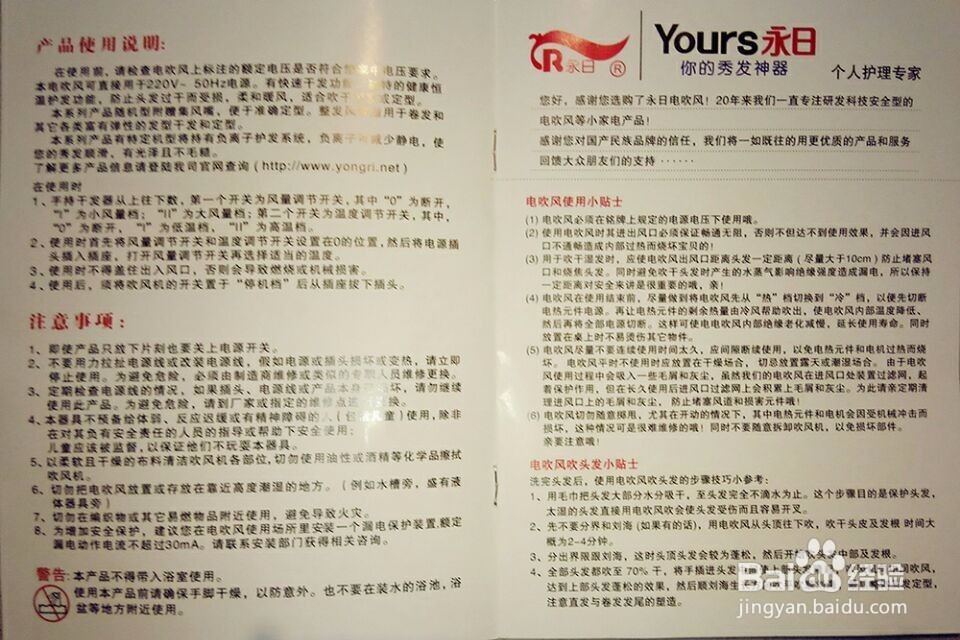 产品使用说明:
在使用前,请检查电吹风上标注的额定电压是否符合 电压要求。
本电吹风可直接用于220V~ 50Hz电源。有快速干发功 的健康恒
温护发功能,防止头发过干而受损,柔和暖风,适合吹 或定型。
本系列产品随机型附赠集风嘴,便于准确定型。整发 用于卷发和
其它各类富有弹性的发型干发和定型。
本系列产品有特定机型将持有负离子护发系统,负离子可减少静电,使
您的秀发顺滑,有光泽且不毛糙。
了解更多产品信息请登陆我司官网查询(http://www.yongri.net)
在使用时
1、手持干发器从上往下数,第一个开关为风量调节开关,其中“0”为断开,
“I”为小风量档;“II”为大风量档;第二个开关为温度调节开关,其中,
“0”为断开,“I”为低温档,“II”为高温档。
2、使用时首先将风量调节开关和温度调节开关设置在0的位置,然后将电源插
头插入插座,打开风量调节开关再选择适当的温度。
3、使用时不得盖住出入风口,否则会导致燃烧或机械损害。
4、使用后,须将吹风机的开关置于“停机档”后从插座拔下插头。
注意事项:
1、即使产品只放下片刻也要关上电源开关。
2、不要用力拉扯电源线或改装电源线,假如电源或插头损坏或变热,请立即
停止使用。为避免危险,必须由制造商维修或类似的专职人员维修更换。
3、定期检查电源线的情况,如果插头、电源线或产品本身 坏,请勿继续
使用此产品。为避免危险,请到厂家或指定的维修点进行更换。
4、本器具不预备给体弱、反应迟缓或有精神障碍的人(包括儿童)使用,除非
在对其负有安全责任的人员的指导或帮助下安全使用;
儿童应该被监督,以保证他们不玩耍本器具。
5、以柔软且干燥的布料清洁吹风机各部位,切勿使用油性或酒精等化学品擦拭
吹风机。
6、切勿把电吹风放置或存放在靠近高度潮湿的地方。(例如水槽旁,盛有液
体器具旁)
7、切勿在编织物或其它易燃物品附近使用,避免导致火灾。
8、为增加安全保护,建议您在电吹风使用场所里安装一个漏电保护装置,额定
漏电动作电流不超过30mA。请联系安装部门获得相关咨询。
警告:本产品不得带入浴室使用。
使用本产品前请确保手脚干燥,以防意外。也不要在装水的浴池,浴
盆等地方附近使用。
R永日®
Yours永日
你的秀发神器
个人护理专家
您好,感谢您选购了永日电吹风!20年来我们一直专注研发科技安全型的
电吹风等小家电产品!
感谢您对国产民族品牌的信任,我们将一如既往的用更优质的产品和服务
回馈大众朋友们的支持······
电吹风使用小贴士
(1) 电吹风必须在铭牌上规定的电源电压下使用哦。
(2) 使用电吹风时其进出风口必须保证畅通无阻,否则不但达不到使用效果,并会因进风
口不通畅造成内部过热而烧坏宝贝的!
(3) 用于吹干湿发时,应使电吹风出风口距离头发一定距离(尽量大于10cm)防止堵塞风
口和烧焦头发。同时避免吹干头发时产生的水蒸气影响绝缘强度造成漏电,所以保持
一定距离对安全来讲是很重要的哦,亲!
(4) 电吹风在使用结束前,尽量做到将电吹风先从“热”档切换到“冷”档,以便先切断
电热元件电源。再让电热元件的剩余热量由冷风帮助吹出,使电吹风内部温度降低、
然后再将全部电源切断。这样可使电电吹风内部绝缘老化减慢,延长使用寿命。同时
放置在桌上时不易烫伤其它物件。
(5) 电吹风尽量不要连续使用时间太久,应间隙断续使用,以免电热元件和电机过热而烧
坏。电吹风平时不使用时应放置在干燥场合,切忌放置露天或潮湿场合。由于电吹
风使用过程中会吸入一些毛屑和灰尘,虽然我们的电吹风在进风口处装置过滤网,起
着保护作用,但在长久使用后进风口过滤网上会积累上毛屑和灰尘。为此请亲定期清
理进风口上的毛屑和灰尘,防止堵塞风道和损害元件哦!
(6) 电吹风切勿随意掷甩,尤其在开动的情况下,其中电热元件和电机会因受机械冲击而
损坏,这种情况可是很难维修的哦!同时不要随意拆卸吹风机,以免损坏部件。
亲要注意哦!
电吹风吹头发小贴士
洗完头发后,使用电吹风吹头发的步骤技巧小参考:
1、用毛巾把头发大部分水分吸干,至头发完全不滴水为止。这个步骤目的是保护头发,
太湿的头发直接用电吹风吹会使头发受伤而且容易开叉。
2、先不要分界和刘海(如果有的话),用电吹风从头顶往下吹,吹干头皮及发根 时间大
概为2-4分钟。
3、分出界限跟刘海,这时头顶头发会较为蓬松,然后开始吹头发中部及发根。
4、全部头发都吹至 70% 干,将手插进头发 吹风,
达到上部头发蓬松的效果,然后顺刘海 发定型,
注意直发与卷发发尾的塑造。
Baidu经验
jingyan.baidu.com